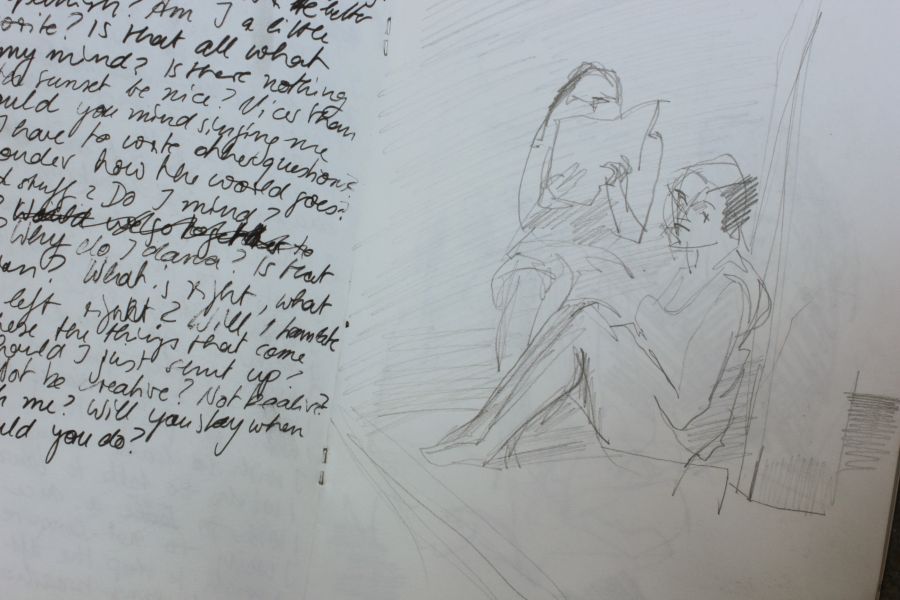 ? Am I a little
write? Is that all what
my mind? Is there nothing
sunset be nice? Vices than
ould you mind singing me
I have to write other questions
onder how the world goes?
d stuff? Do I mind?
to
Why do I dance? Is that
What's right, what
left right? Will I translate
these the things that come
hould I just shut up?
Not be creative? Not
h me? Will you stay when
uld you do?